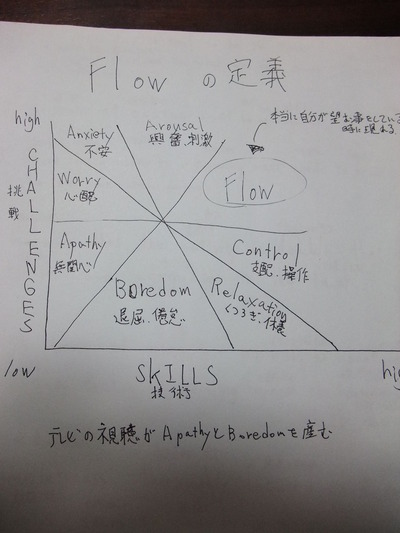 Flow の定義
本当に自分が望む事をしている
時に現れる
high
Anxiety
不安
Arousal
興奮、刺激
Worry
心配
Flow
CHALLENGES
挑戦
Apathy
無関心
Control
支配、操作
Boredom
退屈、倦怠
Relaxation
くつろぎ、休養
low
SKILLS
技術
hig
テレビの視聴がApathyとBoredomを産む